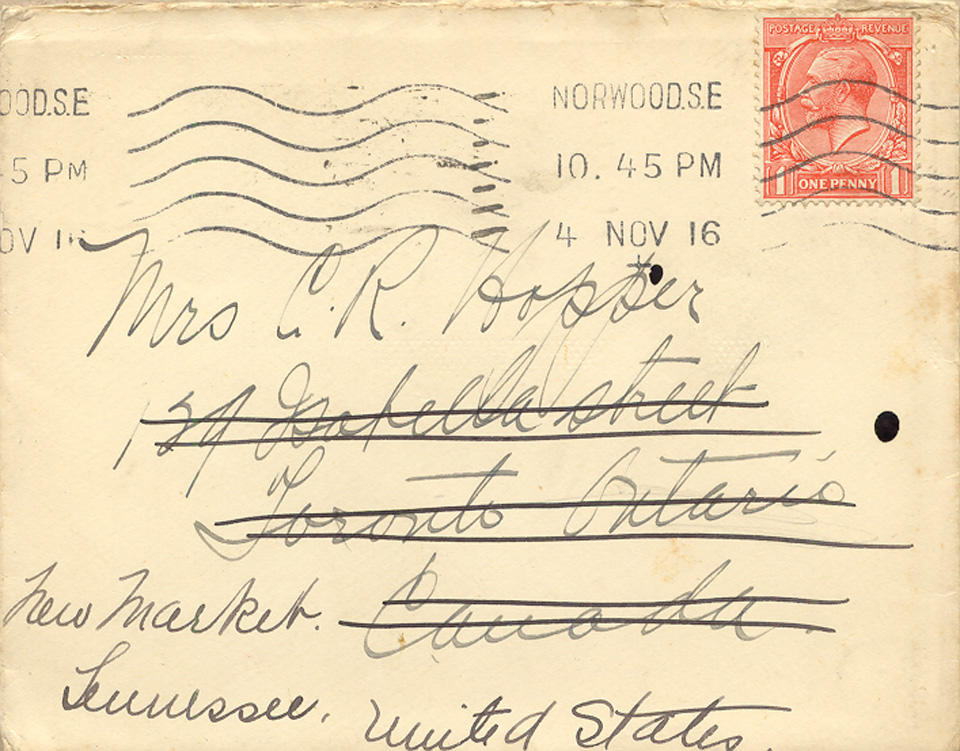 POSTAGE REVENUE
OOD.S.E NORWOOD.S.E
45 PM 10. 45 PM
ONE PENNY
1 1
OV 16 4 NOV 16
Mrs C. R. Hopper
139 Isabella street
Toronto Ontario
Canada.
New Market.
Tennessee.
United States.